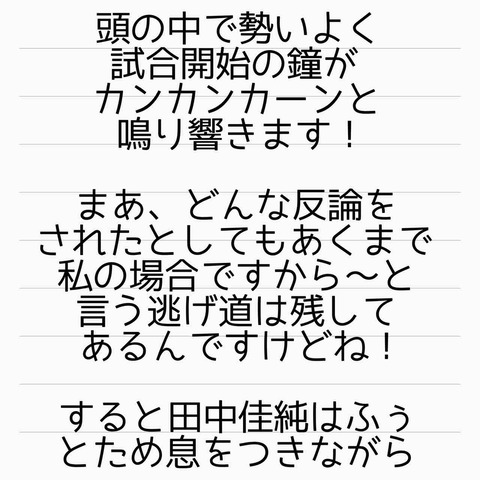 頭の中で勢いよく
試合開始の鐘が
カンカンカーンと
鳴り響きます！
まあ、どんな反論を
されたとしてもあくまで
私の場合ですから〜と
言う逃げ道は残して
あるんですけどね！
すると田中佳純はふぅ
とため息をつきながら